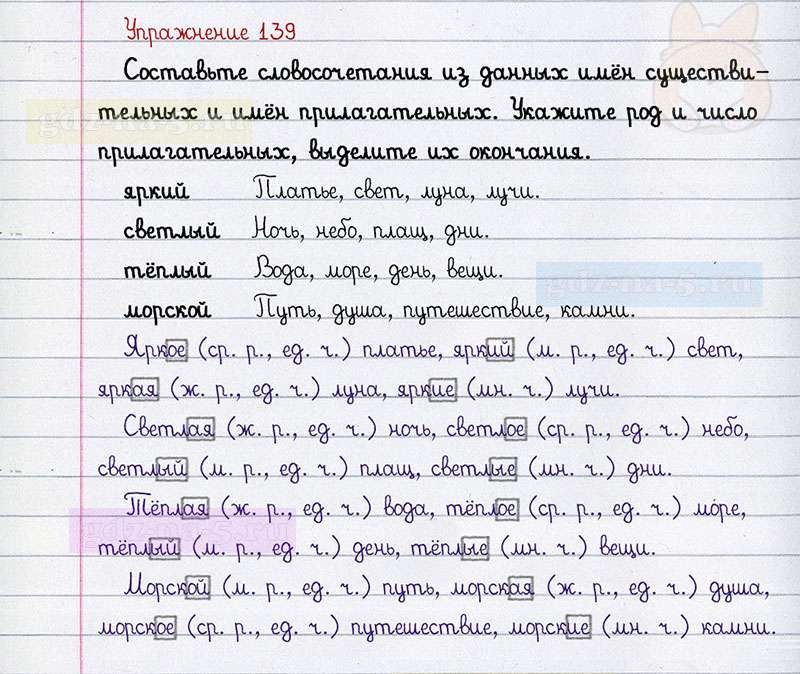 Упражнение 139
Составьте словосочетания из данных имён существи-
тельных и имён прилагательных. Укажите род и число
прилагательных, выделите их окончания.
яркий Платье, свет, луна, лучи.
светлый Ночь, небо, плащ, дни.
тёплый Вода, море, день, вещи.
морской Путь, душа, путешествие, камни.
Яркое (ср. р., ед. ч.) платье, яркий (м. р., ед. ч.) свет,
яркая (ж. р., ед. ч.) луна, яркие (мн. ч.) лучи.
Светлая (ж. р., ед. ч.) ночь, светлое (ср. р., ед. ч.) небо,
светлый (м. р., ед. ч.) плащ, светлые (мн. ч.) дни.
Тёплая (ж. р., ед. ч.) вода, тёплое (ср. р., ед. ч.) мо́ре,
тёплый (м. р., ед. ч.) день, тёплые (мн. ч.) вещи.
Морской (м. р., ед. ч.) путь, морская (ж. р., ед. ч.) душа,
морское (ср. р., ед. ч.) путешествие, морские (мн. ч.) камни.
gdz-na-5.ru
gdz-na-5.ru
gdz-na-5.ru